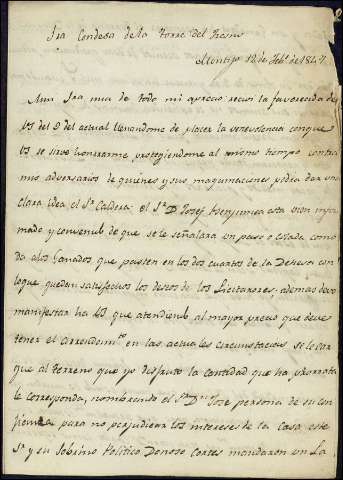 Sra Condesa de la Torre del Fresno
Montijo 12 de Febo de 1847.
Muy Sra mia de todo mi aprecio recivi la favorecida de
VS del 8 del actual llenandome de placer la con que
VS se sirve honrarme protegiendome al mismo tiempo contra
mis adversarios de quienes y sus maquinaciones podra dar una
clara idea el Sr Caldera: el Sr D. Josef Benjumea esta bien infor
mado y convenido de que se le señalara un paso o colada como
da a los ganados que pasten en los dos cuartos de la Dehesa con
lo que queden satisfechos los deseos de los Licitadores, ademas devo
manifestar ha VS que atendiendo al mayor precio que deve
tener el arrendamto en las actuales circunstacias se le car
gue al terreno que yo disfruto la cantidad que ha prorrata
le corresponda, nombrando el Sr Dn Jose persona de su con
fianza para no perjudicar los intereses de la casa este
Sr y su Sobrino Politico Donoso Cortes mandaron un La